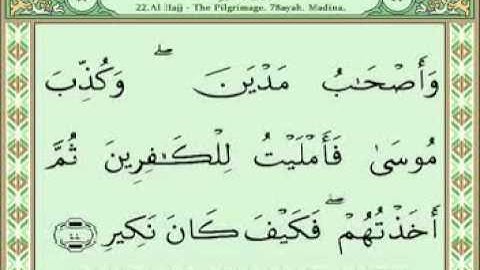 22.Al Hajj - The Pilgrimage. 78ayah. Madina.
وَأَصْحَٰبُ مَدْيَنَ ۖ وَكُذِّبَ
مُوسَىٰ فَأَمْلَيْتُ لِلْكَٰفِرِينَ ثُمَّ
أَخَذْتُهُمْ ۖ فَكَيْفَ كَانَ نَكِيرِ ﴿٤٤﴾